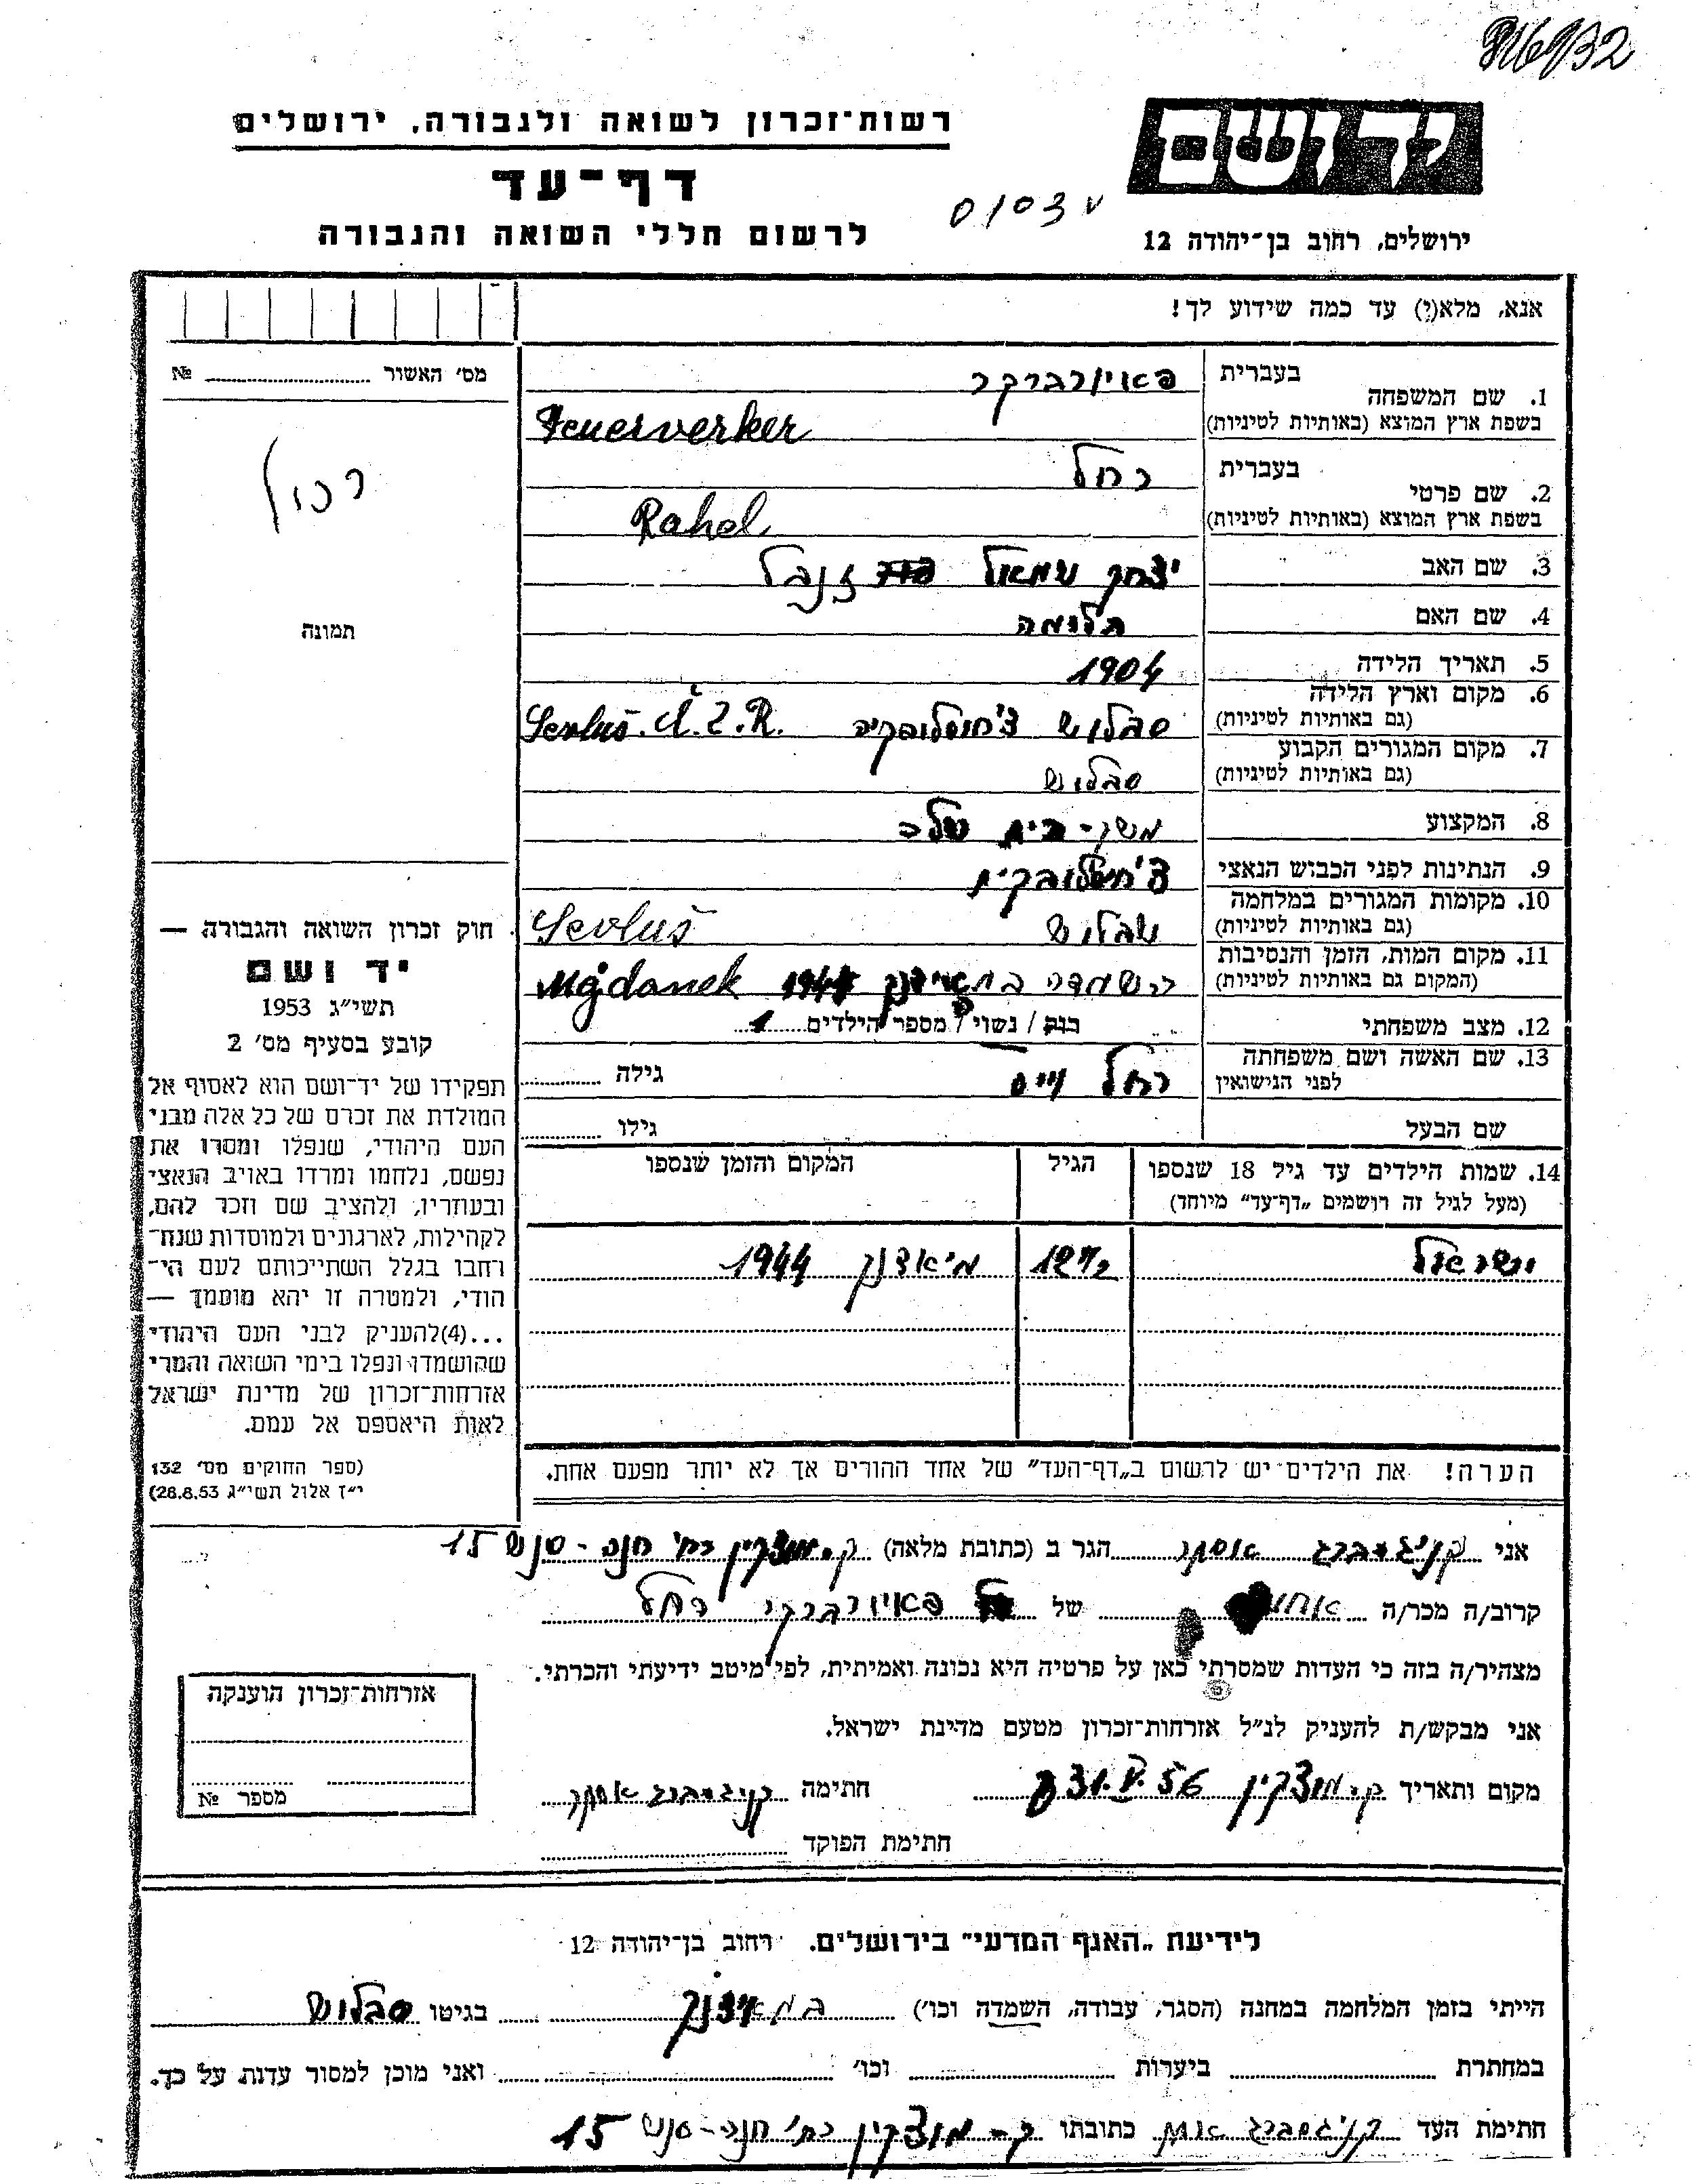 רשות־זכרון לשואה ולגבורה, ירושלים
דף־עד
לרשום חללי השואה והגבורה
יד ושם
ירושלים, רחוב בן־יהודה 12
אנא, מלא(י) עד כמה שידוע לך!
מס' האשור № 
תמונה
1. שם המשפחה בעברית פאיורברקר
בשפת ארץ המוצא (באותיות לטיניות) Feuerverker
2. שם פרטי בעברית רחל
בשפת ארץ המוצא (באותיות לטיניות) Rahel
3. שם האב יצחק שמואל זנבל
4. שם האם
5. תאריך הלידה 1904
6. מקום וארץ הלידה (גם באותיות לטיניות) סבלוש צ'חוסלובקיה Sevluš. Č.S.R.
7. מקום המגורים הקבוע (גם באותיות לטיניות) סבלוש
8. המקצוע משק־בית שלב
9. הנתינות לפני הכבוש הנאצי צ'חוסלובקית
10. מקומות המגורים במלחמה (גם באותיות לטיניות) סבלוש Sevluš
11. מקום המות, הזמן והנסיבות (המקום גם באותיות לטיניות) השמדה במאידנק 1944 Majdanek
12. מצב משפחתי רוק / נשוי / מספר הילדים 1
13. שם האשה ושם משפחתה לפני הנישואין רחל וייס גילה
שם הבעל גילו
14. שמות הילדים עד גיל 18 שנספו הגיל המקום והזמן שנספו
(מעל לגיל זה רושמים "דף־עד" מיוחד)
ישראל 12½ מיאדנק 1944
הערה! את הילדים יש לרשום ב"דף־העד" של אחד ההורים אך לא יותר מפעם אחת.
חוק זכרון השואה והגבורה —
יד ושם
תשי"ג 1953
קובע בסעיף מס' 2
תפקידו של יד־ושם הוא לאסוף אל
המולדת את זכרם של כל אלה מבני
העם היהודי, שנפלו ומסרו את
נפשם, נלחמו ומרדו באויב הנאצי
ובעוזריו, ולהציב שם וזכר להם,
לקהילות, לארגונים ולמוסדות שנח־
רחבו בגלל השתייכותם לעם הי־
הודי, ולמטרה זו יהא מוסמך —
...(4) להעניק לבני העם היהודי
שהושמדו ונפלו בימי השואה והמרי
אזרחות־זכרון של מדינת ישראל
לאות היאספם אל עמם.
(ספר החוקים מס' 132
י"ז אלול תשי"ג 28.8.53)
אני קניגסברג אוסקר הגר ב (כתובת מלאה) ק. מוצקין רח' חנה־סנש 15
קרוב/ה מכר/ה של פאיורברקר רחל
מצהיר/ה בזה כי העדות שמסרתי כאן על פרטיה היא נכונה ואמיתית, לפי מיטב ידיעתי והכרתי.
אני מבקש/ת להעניק לנ"ל אזרחות־זכרון מטעם מדינת ישראל.
מקום ותאריך ק. מוצקין חתימה קניגסברג אוסקר
חתימת הפוקד
אזרחות־זכרון הוענקה
מספר №
לידיעת "האגף המדעי" בירושלים. רחוב בן־יהודה 12
הייתי בזמן המלחמה במחנה (הסגר, עבודה, השמדה וכו') במאידנק בגיטו סבלוש
במחתרת ביערות וכו' ואני מוכן למסור עדות על כך.
חתימת העד קניגסברג כתובתו ק. מוצקין רח' חנה־סנש 15